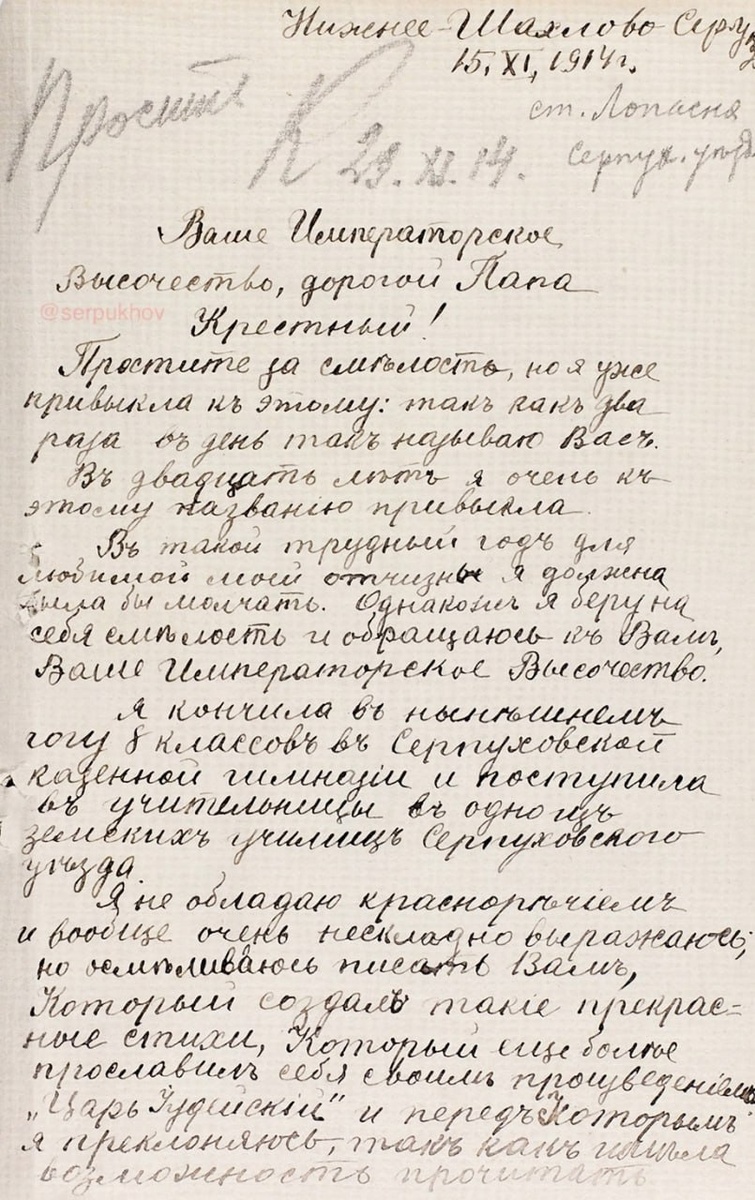 Нижнее-Шахлово Серпух
15, XI, 1914 г.
ст. Лопасня
Серпух. уезд
29. XI. 14.
Ваше Императорское
Высочество, дорогой Папа
@serpukhov
Крестный!
Простите за смѣлость, но я уже
привыкла къ этому: такъ какъ два
раза въ день такъ называю Васъ.
Въ двадцать лѣтъ я очень къ
этому названію привыкла.
Въ такой трудный годъ для
любимой моей отчизны я должна
была бы молчать. Однакожъ я беру на
себя смѣлость и обращаюсь къ Вамъ,
Ваше Императорское Высочество.
Я кончила въ нынѣшнемъ
году 8 классовъ въ Серпуховской
казенной гимназіи и поступила
въ учительницы въ одно изъ
земскихъ училищъ Серпуховского
уѣзда.
Я не обладаю краснорѣчіемъ
и вообще очень нескладно выражаюсь;
но осмѣливаюсь писать Вамъ,
Который создалъ такіе прекрас=
ные стихи, Который еще болѣе
прославилъ себя своимъ произведеніемъ
„Царь Іудейскій" и передъ Которымъ
я преклоняюсь, такъ какъ имѣла
возможность прочитать